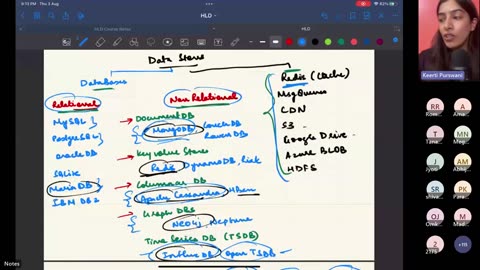 9:15 PM Thu 3 Aug
HLD
82%
HLD Course Notes
HLD
Data Stores
Databases
Relational
MySQL
PostgreSQL
OracleDB
SQLite
MariaDB
IBM DB2
Non Relational
→ Document DB
MongoDB CouchDB
Raven DB
→ Key Value Stores
Redis, DynamoDB, Riak
→ Columnar DB
Apache Cassandra, HBase
→ Graph DBs
Neo4j, Neptune
Time Series DB (TSDB)
Influx DB Open TSDB
Redis (Cache)
Msg Queues
CDN
S3
Google Drive
Azure BLOB
HDFS
Keerti Purswani
RR
A
TM
MG
JA
AM
SS
P
OJ
M
Z
Notes